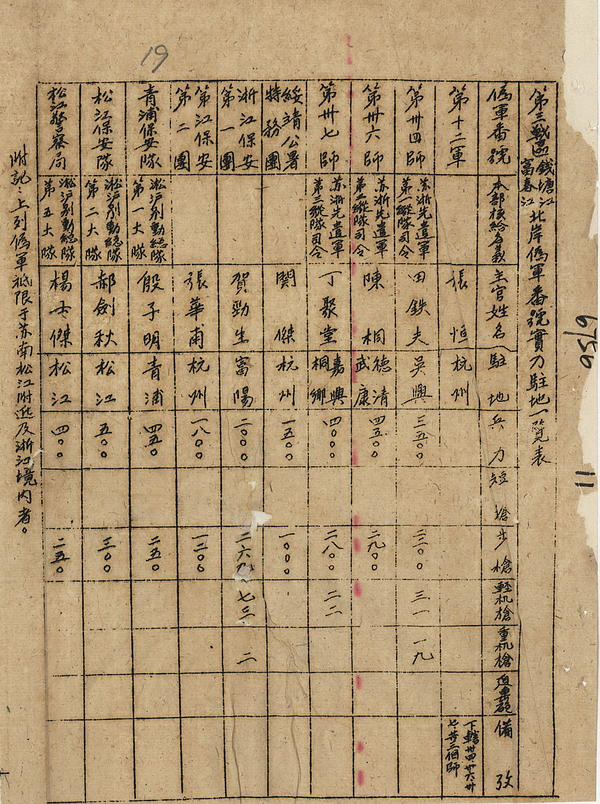 19
6756
11
第三戰區錢塘江富春江北岸偽軍番號實力駐地一覽表
偽軍番號 本部核給名義 主官姓名 駐地 兵力 短槍 步槍 輕机槍 重机槍 迫擊砲 備攷
第十二軍 張恒 杭州 下轄卅四卅六卅七等三個師
第卅四師 蘇浙先遣軍第一縱隊司令 田鉄夫 吳興 三五〇〇 三一 一九
第卅六師 蘇浙先遣軍第二縱隊司令 陳桐 德清武康 四五〇〇 二九〇〇
第卅七師 蘇浙先遣軍第三縱隊司令 丁聚堂 嘉興桐鄉 四〇〇〇 二八〇〇 二二
綏靖公署特務團 関傑 杭州 一五〇〇 一〇〇〇
浙江保安第一團 賀勁生 富陽 七三 二
浙江保安第二團 張華甫 杭州 一八〇〇 一二〇〇
青浦保安隊 淞沪別動總隊第一大隊 殷子明 青浦 四五〇 二五〇
松江保安隊 淞沪別動總隊第二大隊 郝劍秋 松江 五〇〇 三〇〇
松江警察局 淞沪別動總隊第五大隊 楊士傑 松江 四〇〇 二五〇
附記：上列偽軍祇限于苏南松江附近及浙江境内者。